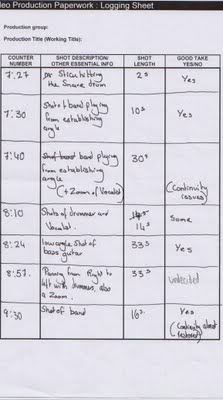 deo Production Paperwork : Logging Sheet
Production group:
Production Title (Working Title):
COUNTER NUMBER
SHOT DESCRIPTION/ OTHER ESSENTIAL INFO
SHOT LENGTH
GOOD TAKE YES/NO
7:27
Stick hitting
the Snare drum
2s
Yes
7:30
Shot of band playing
from establishing
angle
10s
Yes
7:40
band playing
from establishing
angle
(+ Zoom of Vocalist)
30s
(Continuity
issues)
8:10
Shots of drummer and
Vocalist.
14s
Some
8:24
low angle Shot of
bass guitar
33s
Yes
8:57.
Panning from Right to
left with drummer, also
a Zoom.
33s
undecided
9:30
Shot of band
16s.
Yes
(Continuity